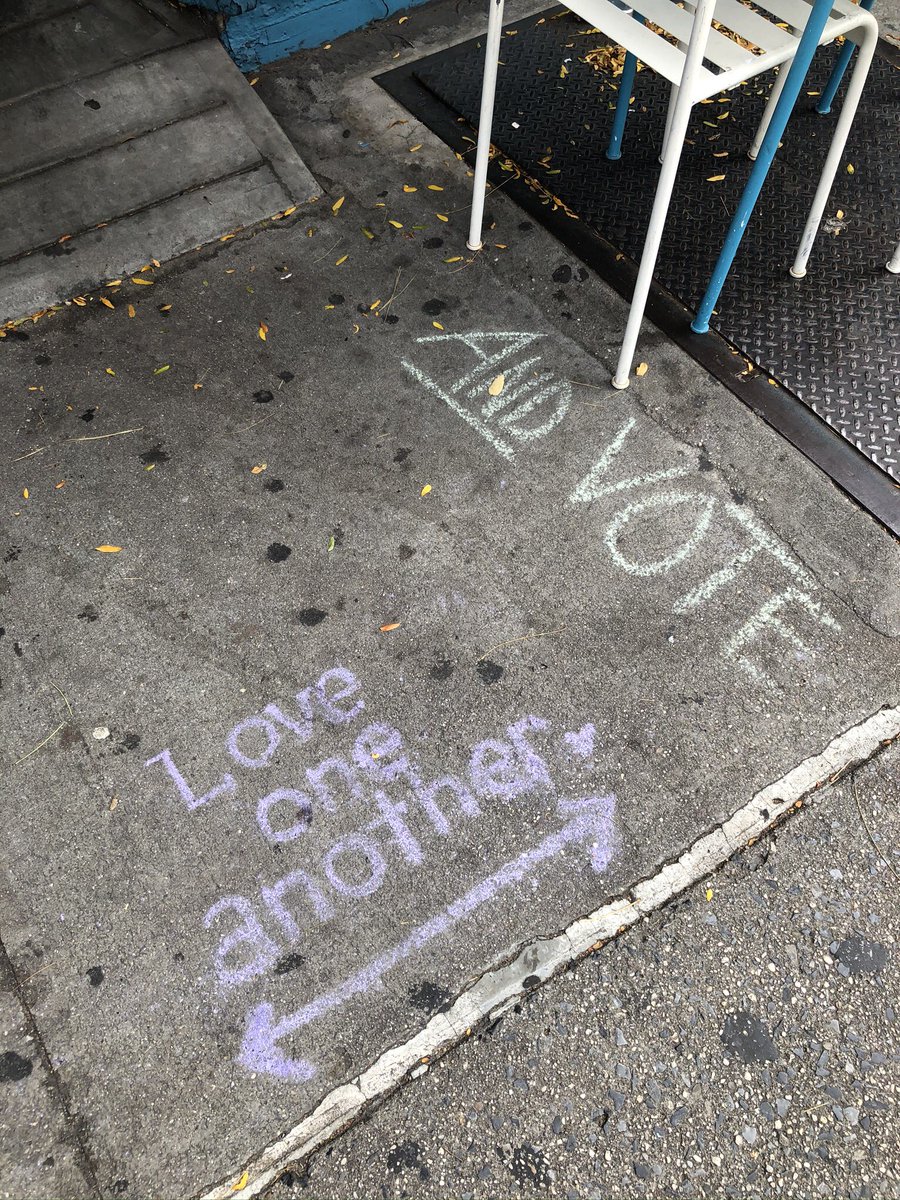 Love
one
another
AND VOTE